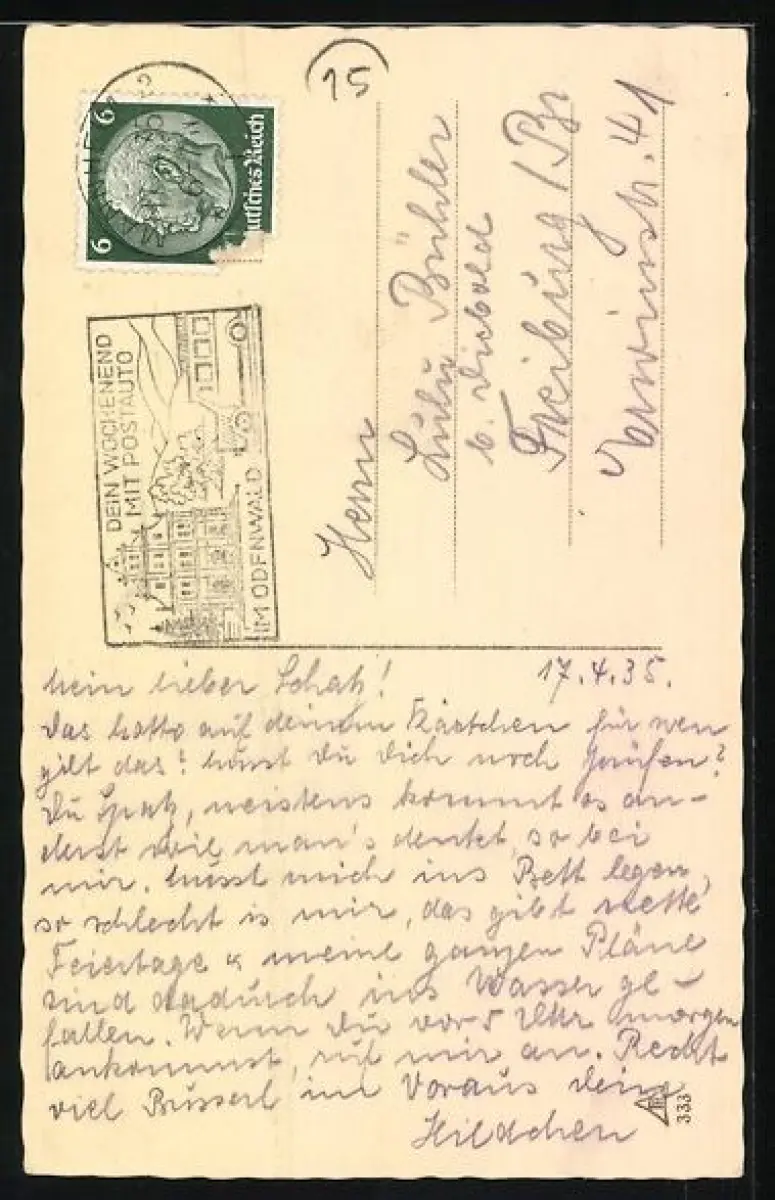 15
6 6
Deutsches Reich
DEIN WOCHENEND
MIT POSTAUTO
IM ODENWALD
Herrn
Lulu Bühler
b. Diebold
Freiburg / Br
Erwinstr. 41
17.4.35.
Mein lieber Schatz!
Das Motto auf deinem Kärtchen für wen
gilt das? Musst Du Dich noch prüfen?
Du Spatz, meistens kommt es an-
derst wie man's denkt, so bei
mir. Musst mich ins Bett legen,
so schlecht is mir, das gibt nette
Feiertage u meine ganzen Pläne
sind dadurch ins Wasser ge-
fallen. Wenn Du vor 5 Uhr morgen
ankommst, ruf mir an. Recht
viel Busserl im Voraus Dein
Hildchen
333